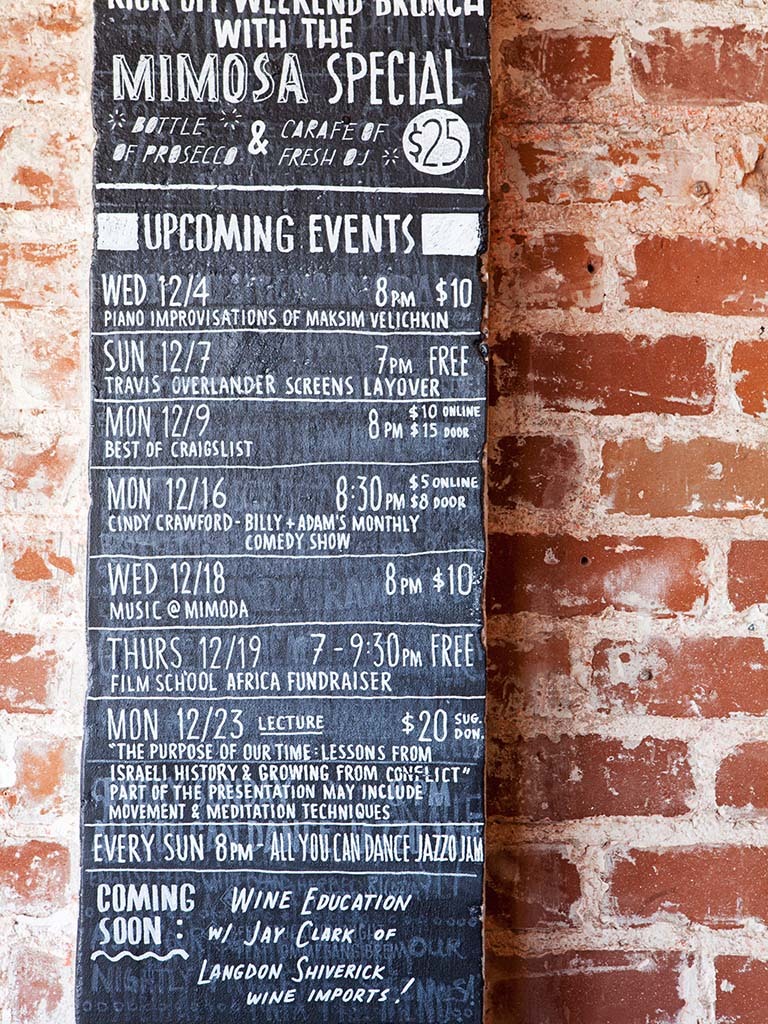 KICK OFF WEEKEND BRUNCH
WITH THE
MIMOSA SPECIAL
BOTTLE OF PROSECCO & CARAFE OF FRESH OJ $25
UPCOMING EVENTS
WED 12/4 8PM $10
PIANO IMPROVISATIONS OF MAKSIM VELICHKIN
SUN 12/7 7PM FREE
TRAVIS OVERLANDER SCREENS LAYOVER
MON 12/9 8PM $10 ONLINE $15 DOOR
BEST OF CRAIGSLIST
MON 12/16 8:30PM $5 ONLINE $8 DOOR
CINDY CRAWFORD - BILLY + ADAM'S MONTHLY
COMEDY SHOW
WED 12/18 8PM $10
MUSIC @ MIMODA
THURS 12/19 7-9:30PM FREE
FILM SCHOOL AFRICA FUNDRAISER
MON 12/23 LECTURE $20 SUG. DON.
"THE PURPOSE OF OUR TIME: LESSONS FROM
ISRAELI HISTORY & GROWING FROM CONFLICT"
PART OF THE PRESENTATION MAY INCLUDE
MOVEMENT & MEDITATION TECHNIQUES
EVERY SUN 8PM - ALL YOU CAN DANCE JAZZO JAM
COMING SOON: WINE EDUCATION
W/ JAY CLARK OF
LANGDON SHIVERICK
WINE IMPORTS!